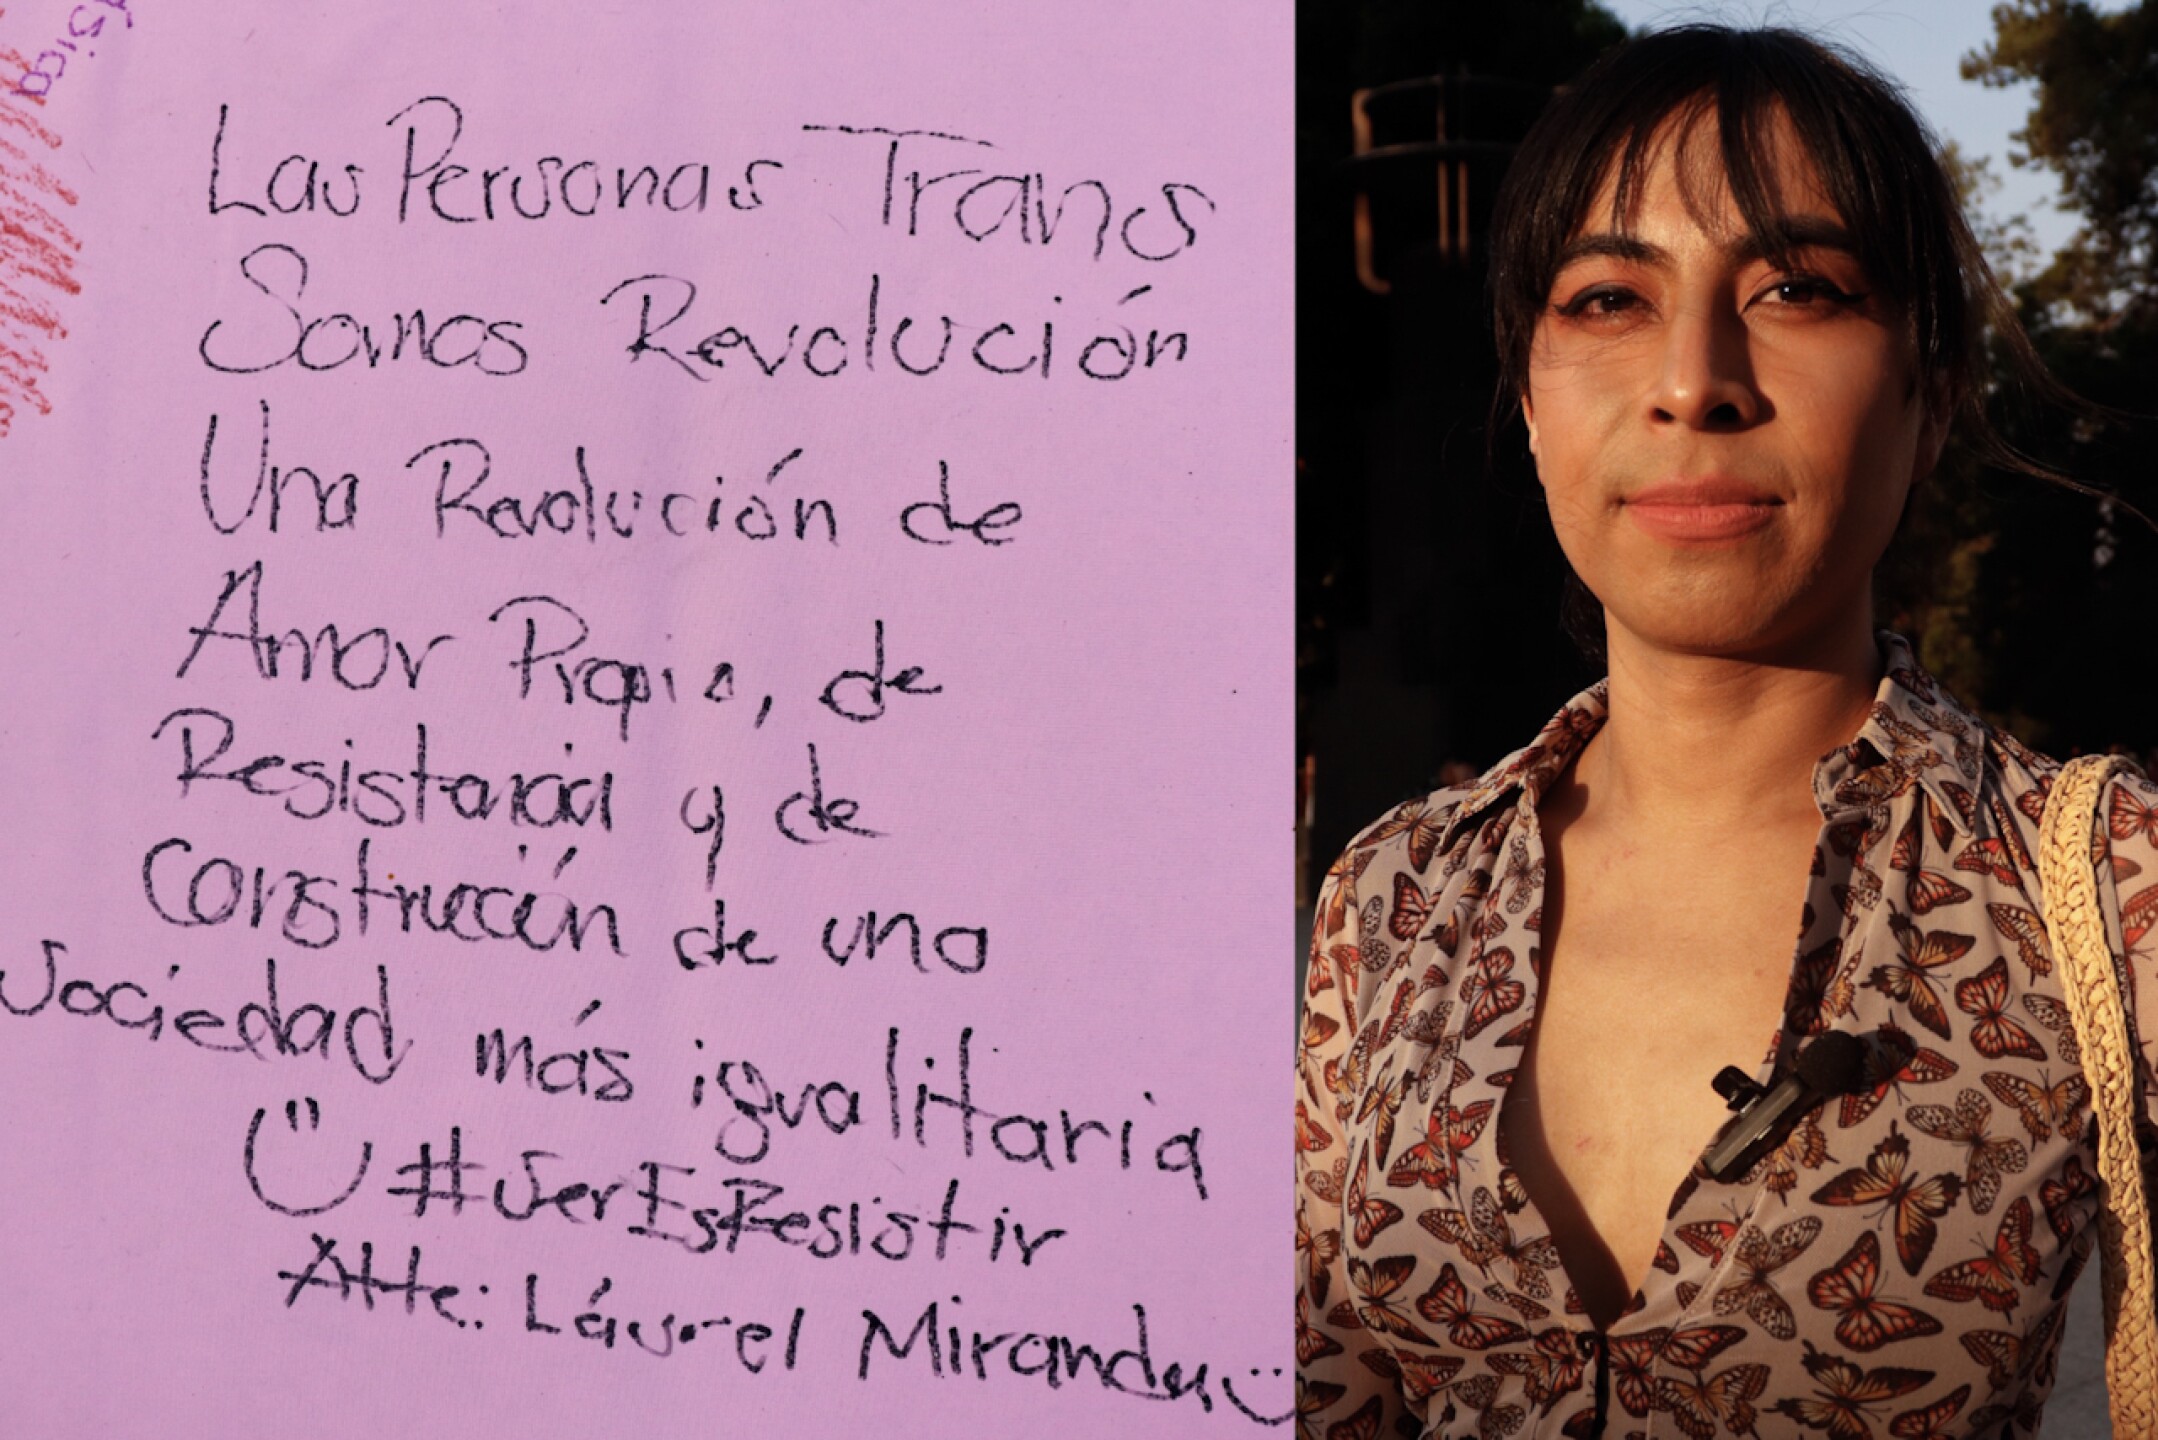 Física
Las Personas Trans
Somos Revolución
Una Revolución de
Amor Propio, de
Resistencia y de
Construcción de una
Sociedad más igualitaria
#SerEsResistir
Atte: Láurel Miranda